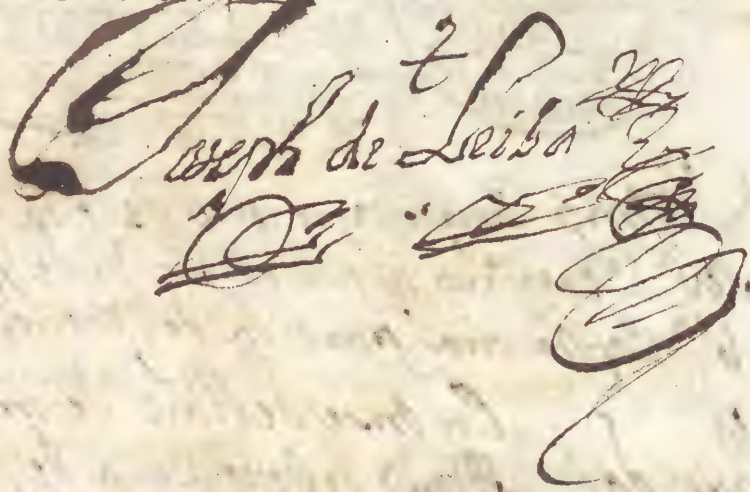 Joseph de Leiba